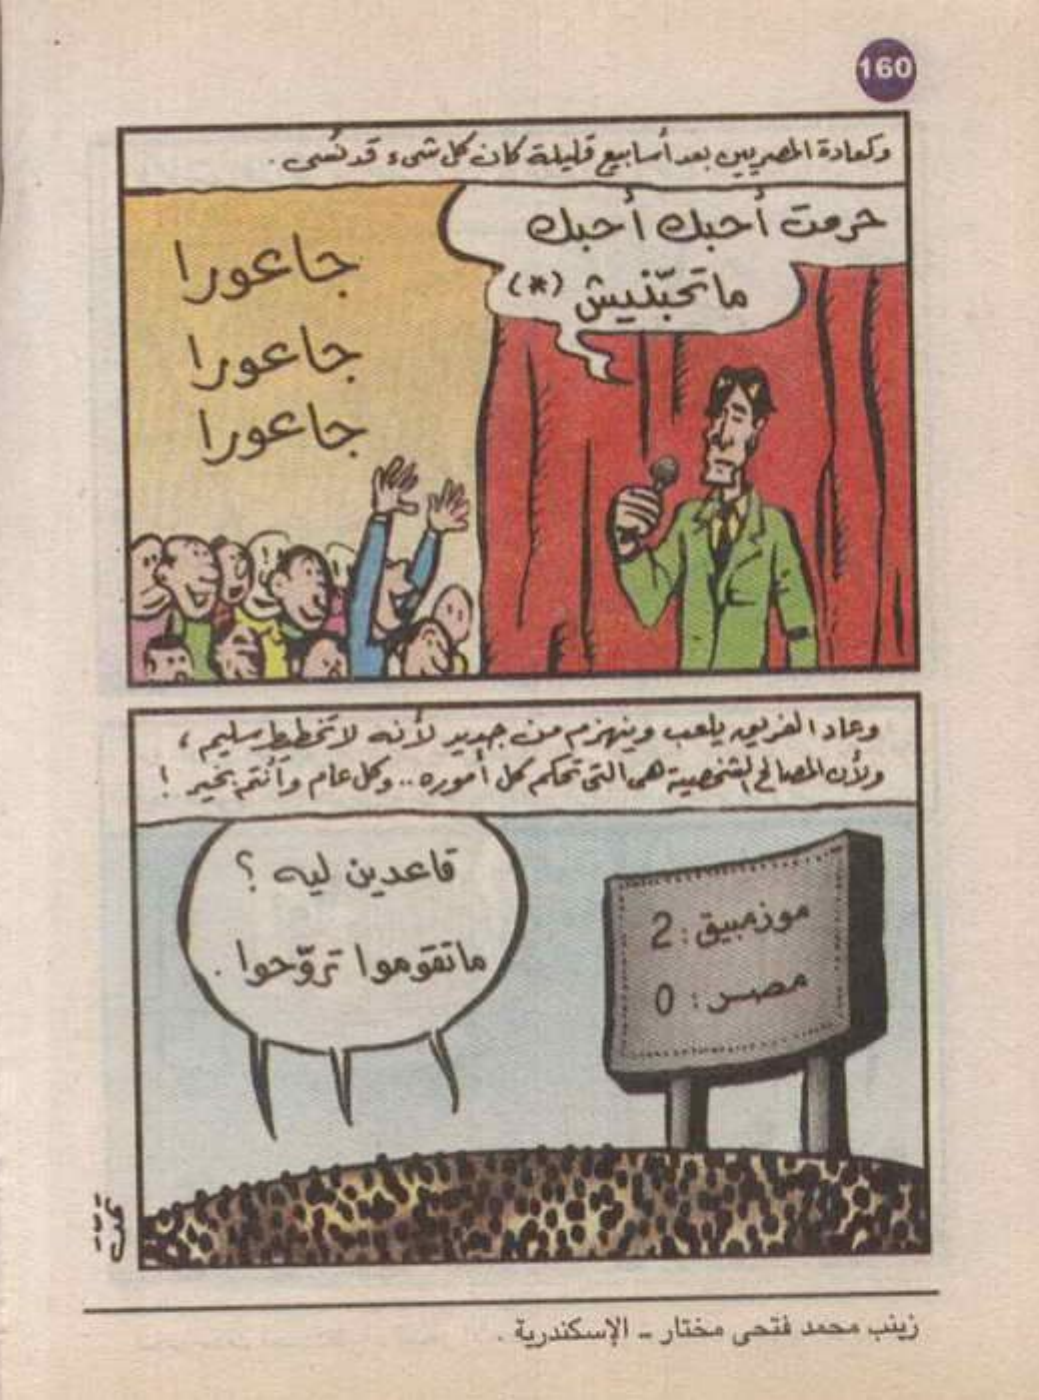 160
وكعادة المصريين بعد أسابيع قليلة كان كل شىء قد نُسى .
حرمت أحبك أحبك
ماتحبّنيش (*)
جاعورا
جاعورا
جاعورا
وعاد الفريق يلعب وينهزم من جديد لأنه لا تخطيط سليم ،
ولأن المصالح الشخصية هى التى تحكم كل أموره .. وكل عام وأنتم بخير !
قاعدين ليه ؟
ماتقوموا تروّحوا .
موزمبيق : 2
مصر : 0
زينب محمد فتحى مختار ـ الإسكندرية .